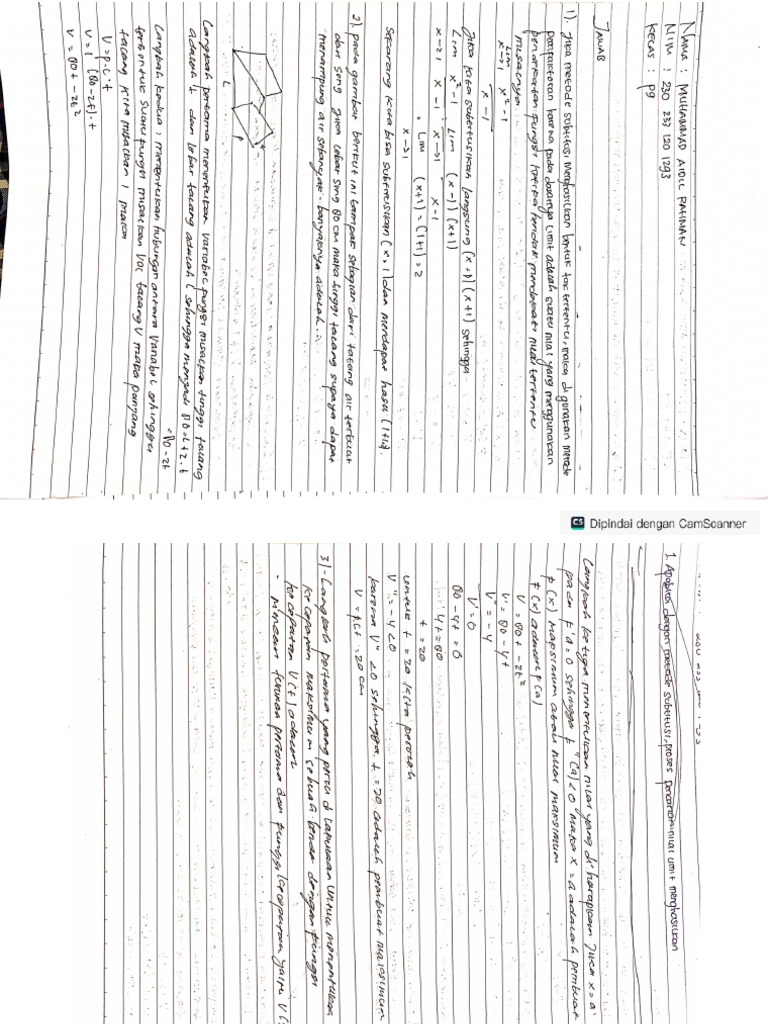 Nama : MUHAMMAD AIDIL RAHMAN
NIM : 230 237 120 1293
KELAS : P9
JAWAB
1). Jika metode subtitusi Menghasilkan bentuk tak tertentu, maka digunakan metode
pemfaktoran karna pada dasarnya limit adalah suatu nilai yang menggunakan
pendekatan fungsi ketika hendak mendekati nilai tertentu
misalnya :
Lim x²-1
x→1 x-1
Jika kita subtitusikan langsung (x-1)(x+1) sehingga
Lim x²-1 Lim (x-1)(x+1)
x→1 x-1 x→1 x-1
= Lim (x+1) = (1+1) = 2
x→1
Sekarang kita bisa subtitusikan (x=1) dan mendapat hasil (1+1).
2). pada gambar berikut ini tampak sebagian dari talang air terbuat
dari seng jika lebar seng 80 cm maka tinggi talang supaya dapat
menampung air sebanyak-banyaknya adalah...
L
P
t
Langkah pertama menentukan Variabel fungsi misalkan tinggi talang
adalah t dan lebar talang adalah l sehingga menjadi 80 = L + 2.t
= 80 - 2t
Langkah kedua : menentukan hubungan antara Variabel sehingga
terbentuk suatu fungsi misalkan Vol talang V maka panjang
talang kita misalkan 1 maka
V = p.l.t
V = 1 (80-2t).t
V = 80t - 2t²
Dipindai dengan CamScanner
1. Apabila dengan metode subtitusi, proses pencarian nilai limit menghasilkan
Langkah ketiga menentukan nilai yang di harapkan Jika x = a
pada f'a = 0 sehingga f"(a) < 0 maka x = a adalah pembuat
f(x) maksimum atau nilai maksimum
f(x) adalah f(a)
V = 80t - 2t²
V' = 80 - 4t
V" = -4
V' = 0
80 - 4t = 0
4t = 80
t = 20
untuk t = 20 kita peroleh
V" = -4 < 0
karena V" < 0 sehingga t = 20 adalah pembuat maksimum
3). Langkah pertama yang perlu di lakukan untuk menentukan
kecepatan maksimum sebuah benda dengan fungsi
kecepatan V(t) adalah
- Mencari turunan pertama dari fungsi kecepatan yaitu V'(